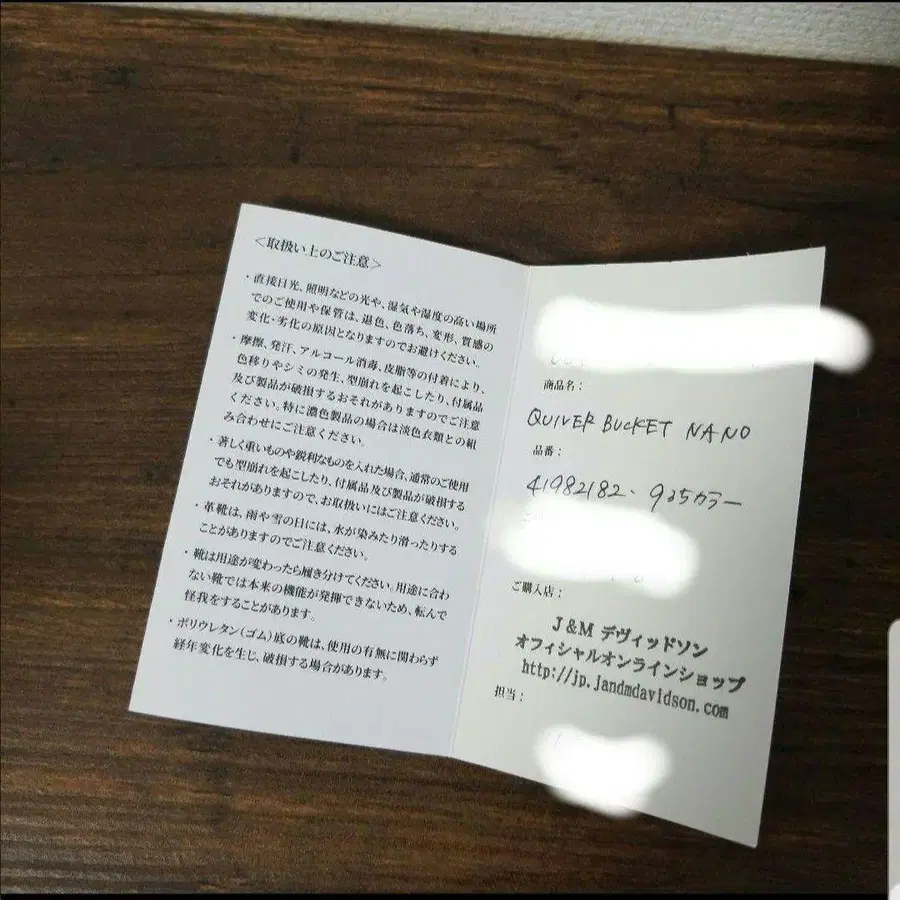 <取扱い上のご注意>
・直接日光、照明などの光や、湿気や湿度の高い場所
でのご使用や保管は、退色、色落ち、変形、質感の
変化・劣化の原因となりますのでお避けください。
・摩擦、発汗、アルコール消毒、皮脂等の付着により、
色移りやシミの発生、型崩れを起こしたり、付属品
及び製品が破損するおそれがありますのでご注意
ください。特に濃色製品の場合は淡色衣類との組
み合わせにご注意ください。
・著しく重いものや鋭利なものを入れた場合、通常のご使用
でも型崩れを起こしたり、付属品及び製品が破損する
おそれがありますので、お取扱いにはご注意ください。
・革靴は、雨や雪の日には、水が染みたり滑ったりする
ことがありますのでご注意ください。
・靴は用途が変わったら履き分けてください。用途に合わ
ない靴では本来の機能が発揮できないため、転んで
怪我をすることがあります。
・ポリウレタン(ゴム)底の靴は、使用の有無に関わらず
経年変化を生じ、破損する場合があります。
商品名:
QUIVER BUCKET NANO
品番:
41982182. 935カラー
ご購入店:
J&M デヴィッドソン
オフィシャルオンラインショップ
http://jp.jandmdavidson.com
担当: